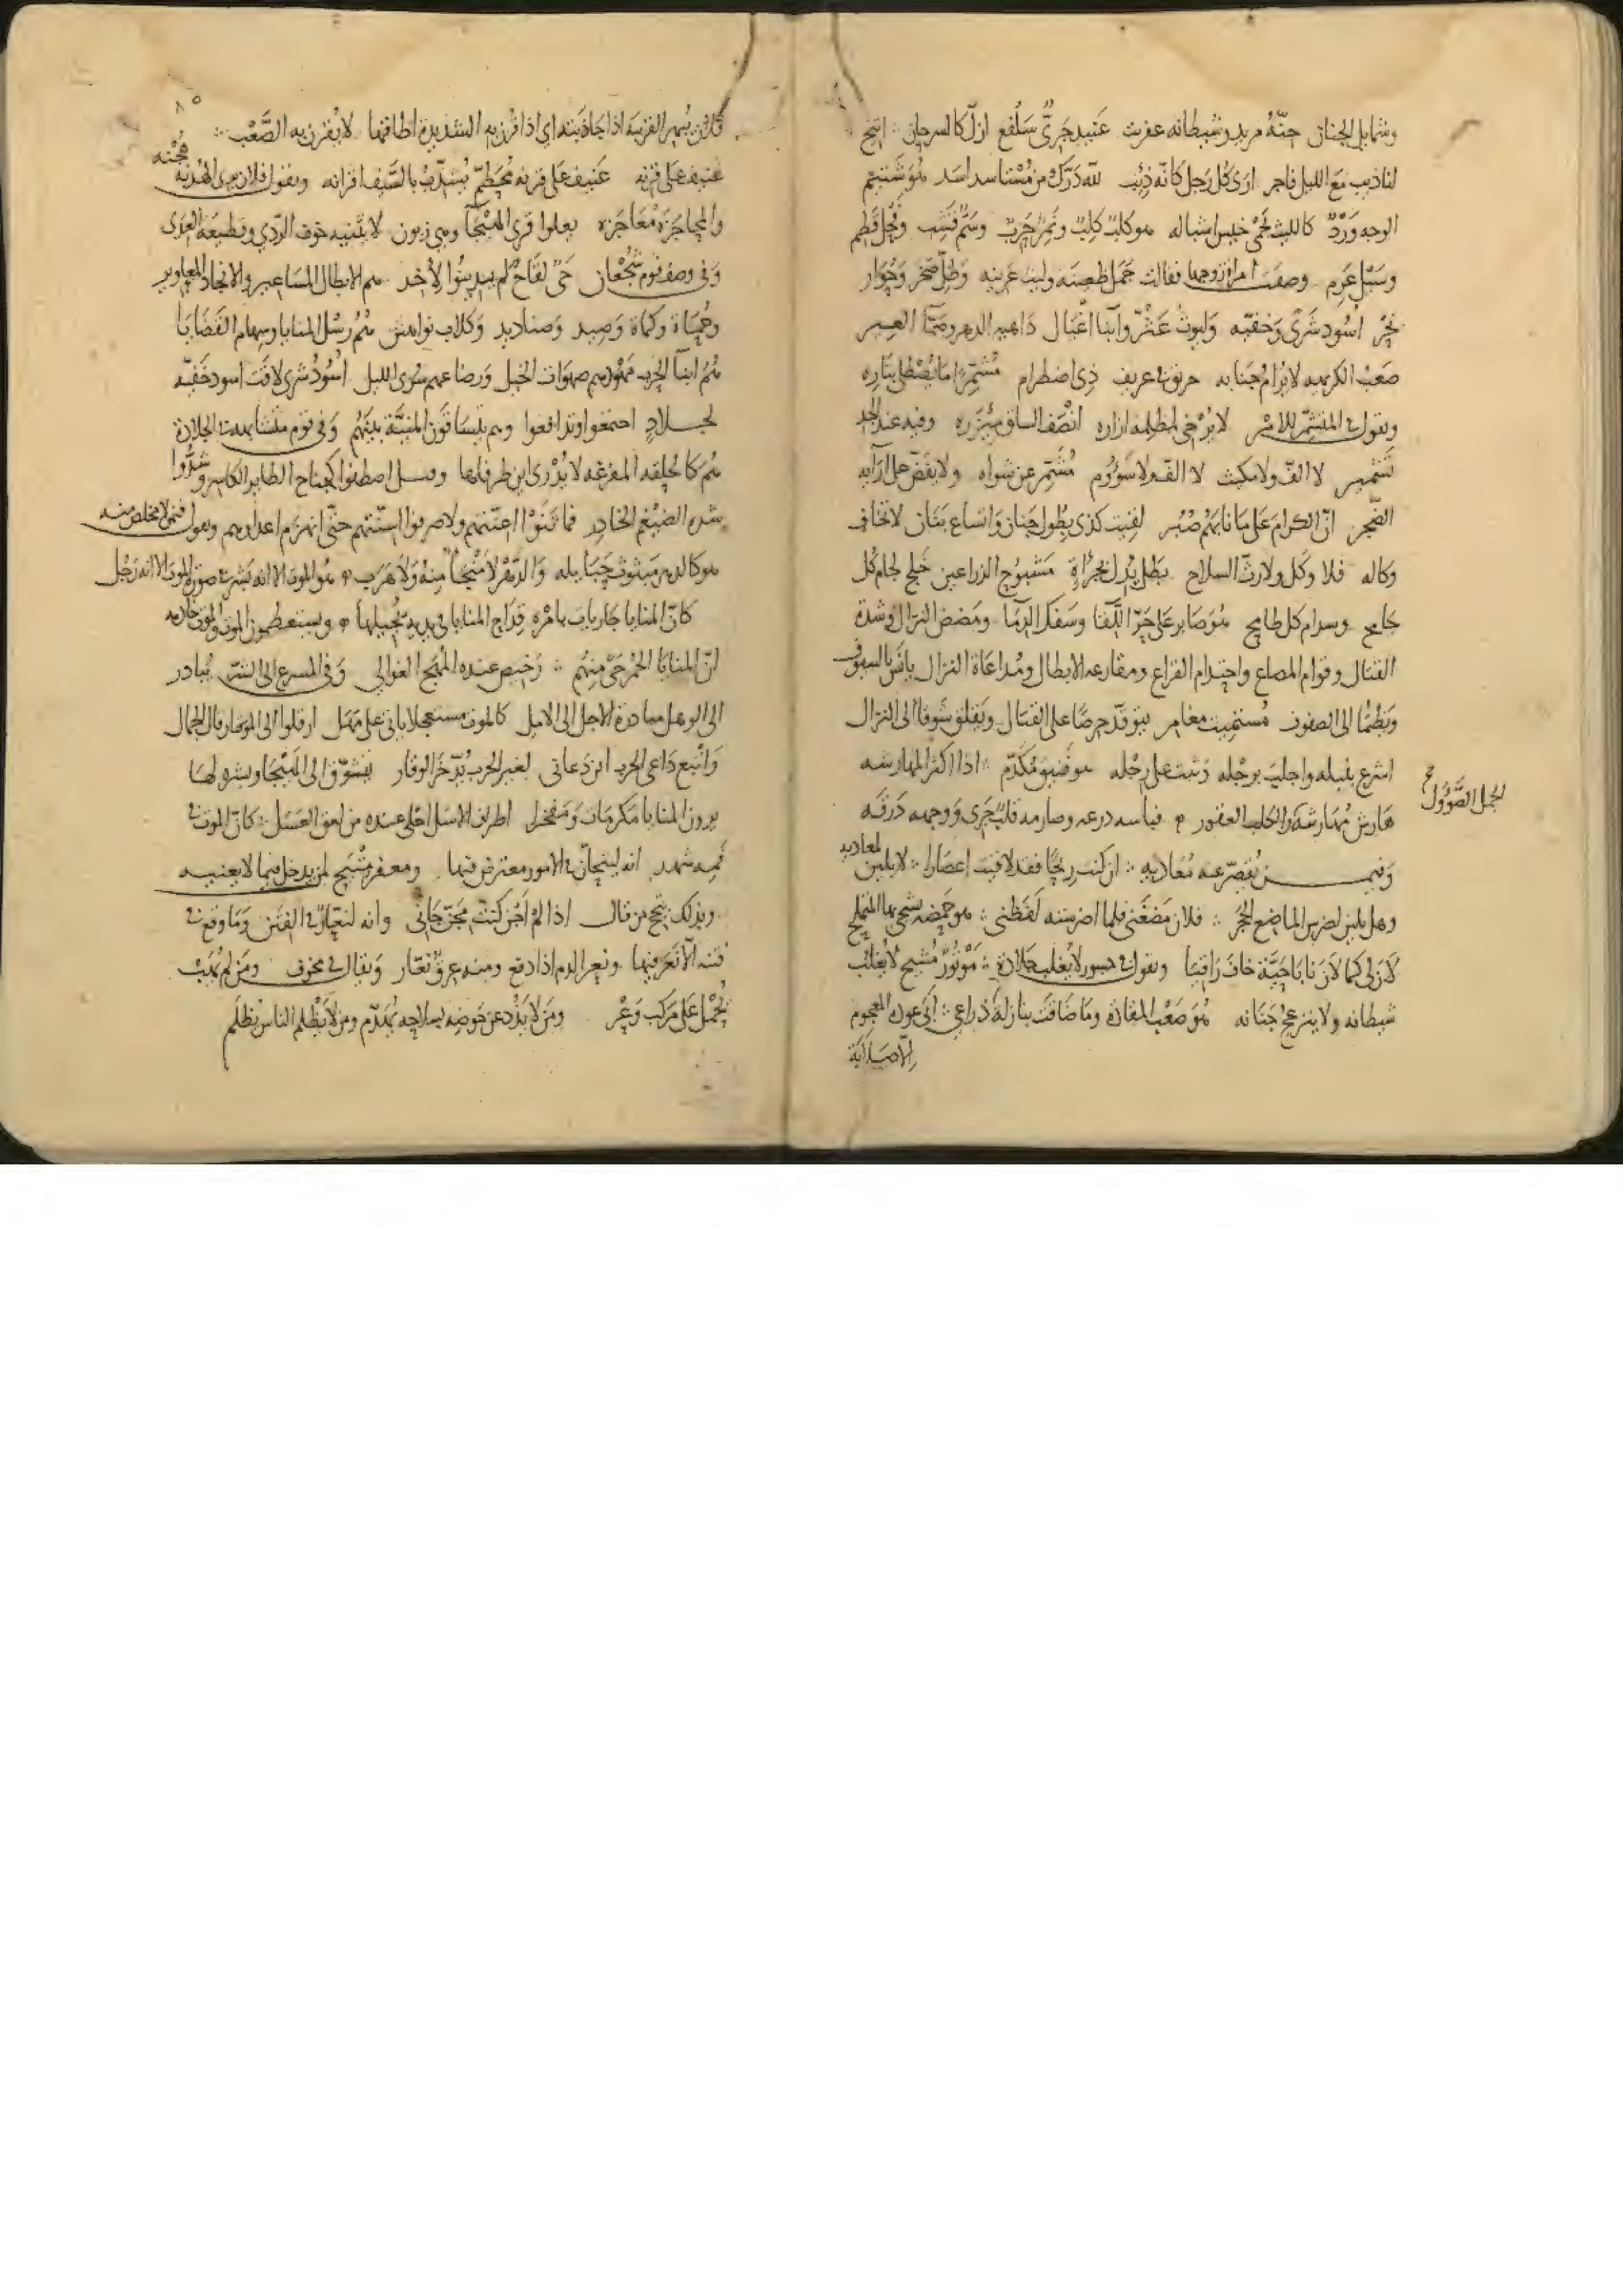 وشمايل الجنان جنّه مريد وشيطانه عفريت عنيد جرئ سلفع ازلّ كالسرحان اتيح
لنا ذيب مع الليل فاجر ارى كل رجل كأنه ذيب لله درّك من مستاسد اسد هو شتيم
الوجه ورد كالليث يحمى خيس اشباله هو كليث كلب ونمر حرب وسم قشب وفحل قطم
وسيل عرم وصفت امراة زوجها فقالت جمل ظعينه وليث عرينه وظل صخر وجوار
بحر اسود شرى وخفيّه وليوث عثّر وابنا اغيال داهيه الدهر وصمّا الغبر
صعب الكريهه لا يرام جنابه حريق عريف ذى اضطرام مشتمرا ما يصطلى بناره
ويقول فى المتشمّر للامر لا يرخى لمظلمه ازاره انصف الساق ميزره وفيه عند الجد
تشمير لا الفّ ولا مكيث لا الف ولا سؤوم مشمّر عن شواه ولا يغض على
الضجر ان الكرام على ما نابهم صبر لقيت كذى بطول جنان واتساع بنان لا تخاف
وكاله فلا وكل ولا رث السلاح بطل يدل بجرأة مشبوح الذراعين خليع لجام كل
جامح وسدام كل طامح هو صابر على حرّ اللقا وسفك الدما ومضض النزال وشدة
القتال وقوام المصاع واحتدام القراع ومقارعه الابطال ومداعاة النزال يانس بالسيوف
ويظما الى الصفوف مستميت مغامر يتوقد حرصا على القتال ويقلق شوقا الى النزال
اشرع بنبله واجلب برجله وثبت على رجله هو ضيق مكدم اذا اكثر المهارشه
هارش مهارشة الكلب العقور فباسه درعه وصارمه قلب جرى ووجهه درقه
لحمل الصوول
وفيمن يقصر عنه معاديه ان كنت ريحا فقد لاقيت اعصارا لا يلين لمعاديه
وهل يلين لضرس الماضغ الحجر فلان مضغنى فلما اضرسته لفظنى هو حمضه
ويقول فى جسور لا يغلب جلادة موتور مشيح لا يغلب
شيطانه ولا ينزعج جنانه هو صعب المقادة وما ضاقت بنازلة ذراعى ابى عوده المعجوم
الا صلابة
٨٥
فلان يبهر القرينه اذا جاذبته اى اذا قرن به الشديدة اطاقها لا يقرن به الصعب
عنيف على قرنه عنيف على قرنه محطّم يشذّب بالسيف اقرانه ويقول فلان يرى الهدنة هجنه
والمحاجزة معاجزه يعلوا قرى الهيجا وهى زبون لا يثنيه خوف الردى وقطيعة العرى
وفى وصف قوم شجعان حى لقاح لم يدينوا لاخد هم الابطال المساعير والانجاد المغاوير
وحماة وكماة وصيد وصناديد وكلاب نواهش هم رسل المنايا وسهام القضايا
هم ابنا الحرب مهودهم صهوات الخيل ورضاعهم سرى الليل اسود شرى لاقت اسود خفيّه
لجلاد اجتمعوا وتدافعوا وهم يتساقون المنيّة بينهم وفى قوم متشابهين الجلادة
هم كالحلقه المفرغه لا يدرى اين طرفاها وسل اصطفوا كجناح الطاير الكاسر وشدوا
شده الضيغم الخادر فما ثنوا اعنتهم ولا صرفوا اسنتهم حتى انهزم اعداوهم ويقول فيمن لا مخلص منه
هو كالدهر مبثوث حبايله والدهر لا منجا منه ولا هرب هو الموت الا انه بشر فى صورة الموت الا انه رجل
كان المنايا جاريات بامره قداح المنايا فى يديه يجيلها ويستعظمون الموت والموت خادمه
ان المنايا الحمر حى منهم رخيص عنده المهج الغوالى وفى المسرع الى الشر يبادر
الى الوهل مبادرة الاجل الى الامل كالموت مستعجلا ياتى على مهل ارقلوا الى الموت ارقال الجمال
واتبع داعى الحرب اين دعانى لغير الحرب يدّخر الوقار يتشوّق الى الهيجا ويشره لها
يرون المنايا مكرمات ومفخرا اطراف الاسل احلى عنده من لعق العسل كان الموت فى
فمه شهد انه ليتيحان فى الامور معترض فيها ومعفر متيح لمن يدخل فيما لا يعنيه
وبذلك يتيح من قال اذا لم اجن كنت مجن جانى وانه لنعّار فى الفتن وما وقعت
فتنه الا نعر فيها ونعر الدم اذا دفع ومنه عرق نعّار ويقال فى مخوف ومن لم يهب
يحمل على مركب وعر ومن لا يذد عن حوضه بسلاحه يهدّم ومن لا يظلم الناس يظلم